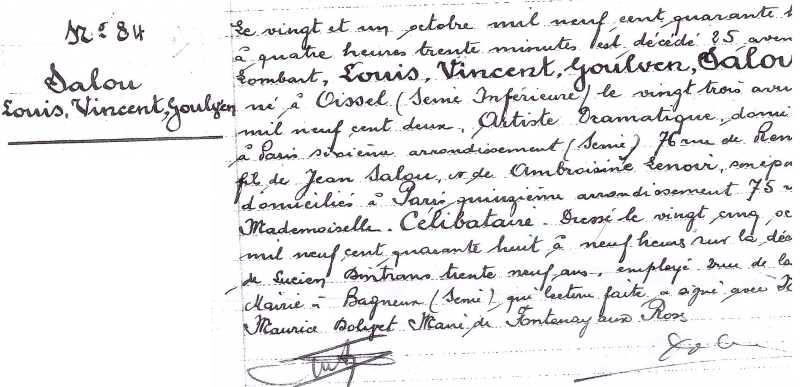 Nº 84
Salou
Louis, Vincent, Goulven
Le vingt et un octobre mil neuf cent quarante h
à quatre heures trente minutes est décédé 25 aven
Lombart, Louis, Vincent, Goulven, Salou
né à Oissel (Seine Inférieure) le vingt trois avri
mil neuf cent deux, Artiste Dramatique, domi
à Paris sixième arrondissement (Seine) 76 rue de Ren
fil de Jean Salou, et de Ambroisine Lenoir, son épou
domiciliés à Paris quinzième arrondissement 75
Mademoiselle. Célibataire. Dressé le vingt cinq oc
mil neuf cent quarante huit à neuf heures sur la déc
de Lucien trente neuf ans, employé rue de la
Mairie à Bagneux (Seine), qui lecture faite, a signé avec
Maurice Dolivet Maire de Fontenay aux Roses